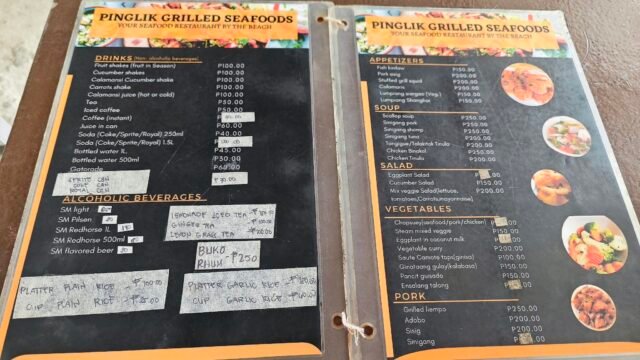 PINGLIK GRILLED SEAFOODS
YOUR SEAFOOD RESTAURANT BY THE BEACH
DRINKS (Non-alcoholic beverages)
Fruit shakes (fruit in Season) ₱100.00
Cucumber shakes ₱100.00
Calamansi Cucumber shake ₱100.00
Carrots shake ₱100.00
Calamansi juice (hot or cold) ₱100.00
Tea ₱50.00
Iced coffee ₱50.00
Coffee (instant)
Juice in can ₱60.00
Soda (Coke/Sprite/Royal) 250ml ₱40.00
Soda (Coke/Sprite/Royal) 1.5L
Bottled water 1L ₱45.00
Bottled water 500ml ₱30.00
Gatorade ₱60.00
SPRITE CAN
COKE CAN
ROYAL CAN
ALCOHOLIC BEVERAGES
SM light
SM Pilsen
SM Redhorse 1L
SM Redhorse 500ml
SM flavored beer
LEMONADE ICED TEA
GINGER TEA
LEMON GRASS TEA
BUKO
RHUM -₱250
PLATTER PLAIN RICE
CUP PLAIN RICE
PLATTER GARLIC RICE
CUP GARLIC RICE
PINGLIK GRILLED SEAFOODS
YOUR SEAFOOD RESTAURANT BY THE BEACH
APPETIZERS
Fish kinilaw ₱150.00
Pork sisig ₱200.00
Stuffed grill squid ₱250.00
Lumpiang sariwa (Veg.) ₱150.00
Lumpiang Shanghai ₱150.00
SOUP
Scallop soup ₱250.00
Sinigang pork ₱250.00
Sinigang shrimp ₱250.00
Sinigang tuna ₱200.00
Tanigigue/Talakitok Tinula ₱200.00
Chicken Binakol ₱250.00
Chicken Tinula ₱200.00
SALAD
Eggplant Salad
Cucumber Salad ₱150.00
Mix veggie Salad(lettuce, ₱200.00
tomatoes/Carrots/mayonnaise)
VEGETABLES
Chopsuey(seafood/pork/chicken)
Steam mixed veggie ₱150.00
Eggplant in coconut milk
Vegetable curry ₱200.00
Saute Camote tops(ginisa) ₱100.00
Ginataang gulay(kalabasa) ₱150.00
Pancit guisado ₱150.00
Ensalang talong
PORK
Grilled liempo ₱250.00
Adobo ₱200.00
Sisig ₱200.00
Sinigang